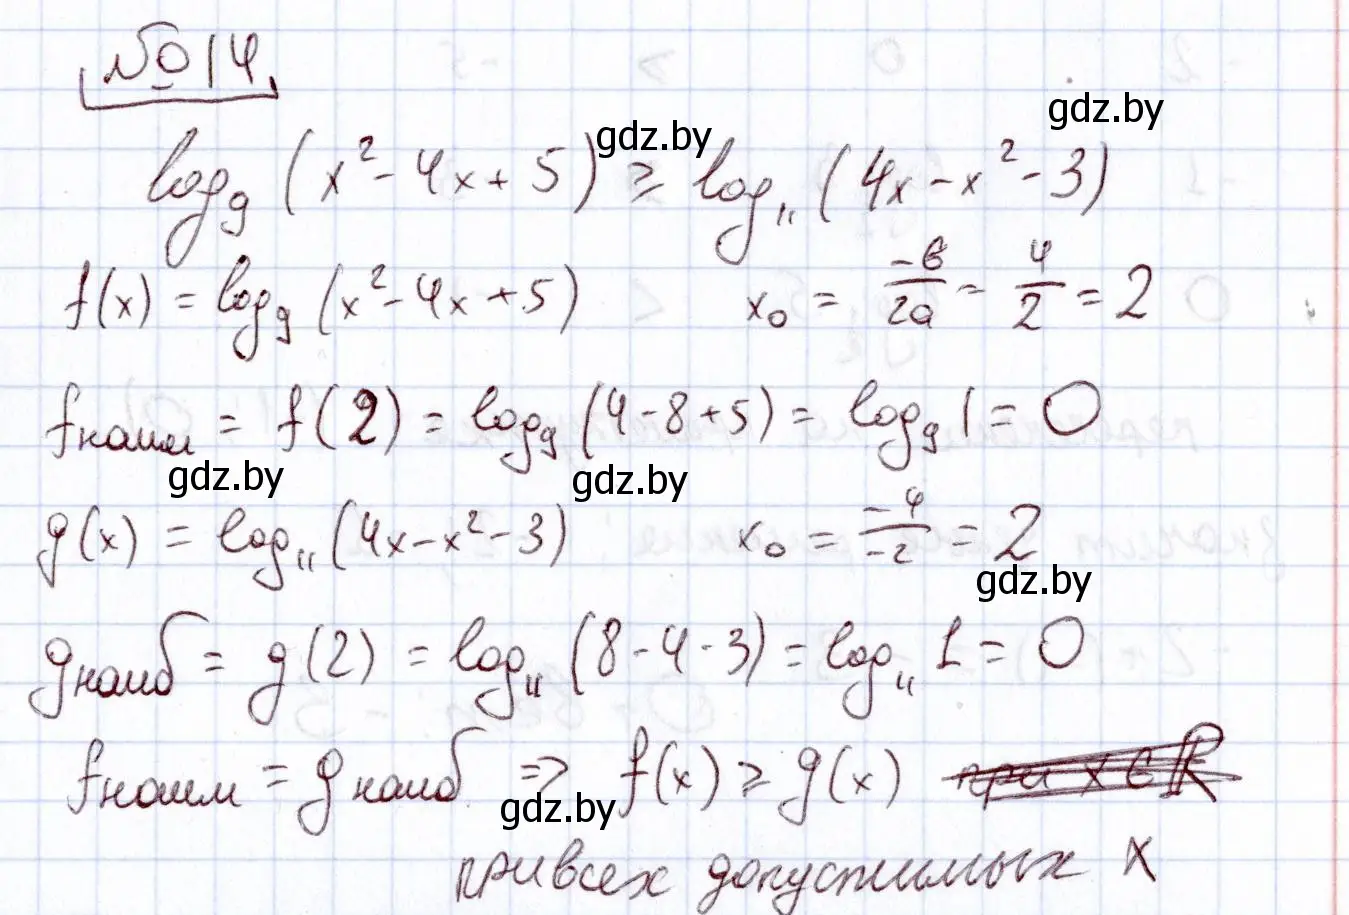 №14
log₉(x² - 4x + 5) ≥ log₁₁(4x - x² - 3)
gdz.by gdz.by
f(x) = log₉(x² - 4x + 5) x₀ = -в/2a = 4/2 = 2
fнаим = f(2) = log₉(4 - 8 + 5) = log₉1 = 0
gdz.by gdz.by
g(x) = log₁₁(4x - x² - 3) x₀ = -4/-2 = 2
gdz.by
gнаиб = g(2) = log₁₁(8 - 4 - 3) = log₁₁1 = 0
fнаим = gнаиб => f(x) ≥ g(x) при x ∈ R
gdz.by
при всех допустимых x